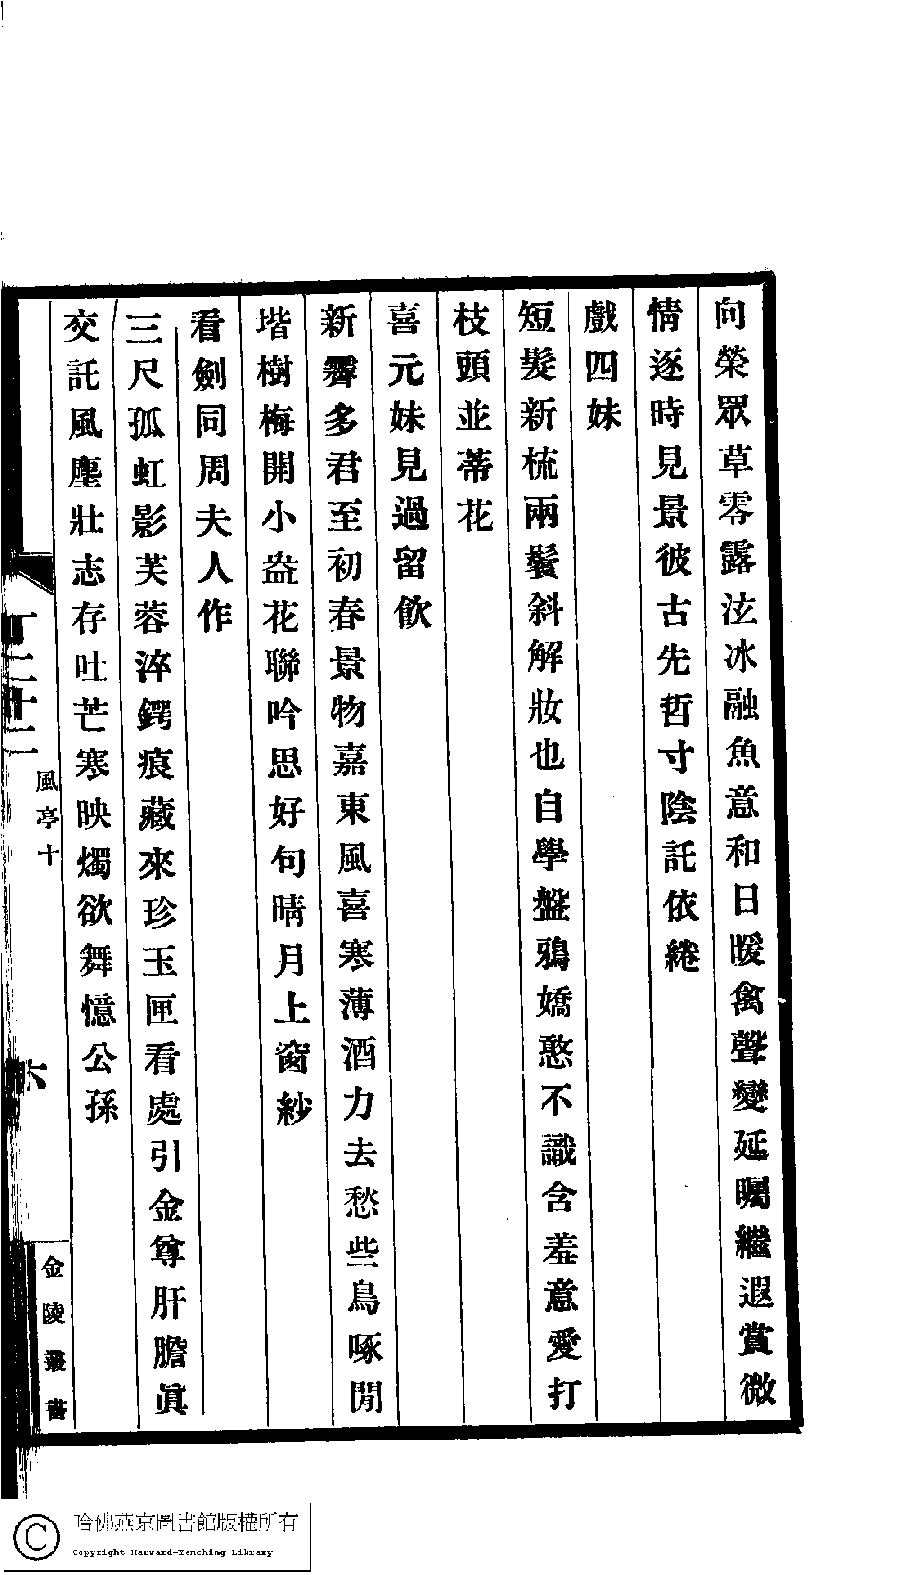 向榮眾草零露泫冰融魚意和日暖禽聲變延矚繼遐賞微
情逐時見景彼古先哲寸陰託依綣
戲四妹
短髮新梳兩鬢斜解妝也自學盤鴉嬌憨不識含羞意愛打
枝頭並蒂花
喜元妹見過留飲
新霽多君至初春景物嘉東風喜寒薄酒力去愁些鳥啄閒
堦樹梅開小盎花聯吟思好句晴月上窗紗
看劍同周夫人作
三尺孤虹影芙蓉淬鍔痕藏來珍玉匣看處引金尊肝膽眞
交託風塵壯志存吐芒寒映燭欲舞憶公孫
風亭十
六
金陵叢書
哈佛燕京圖書館版權所有
Copyright Harvard-Yenching Library